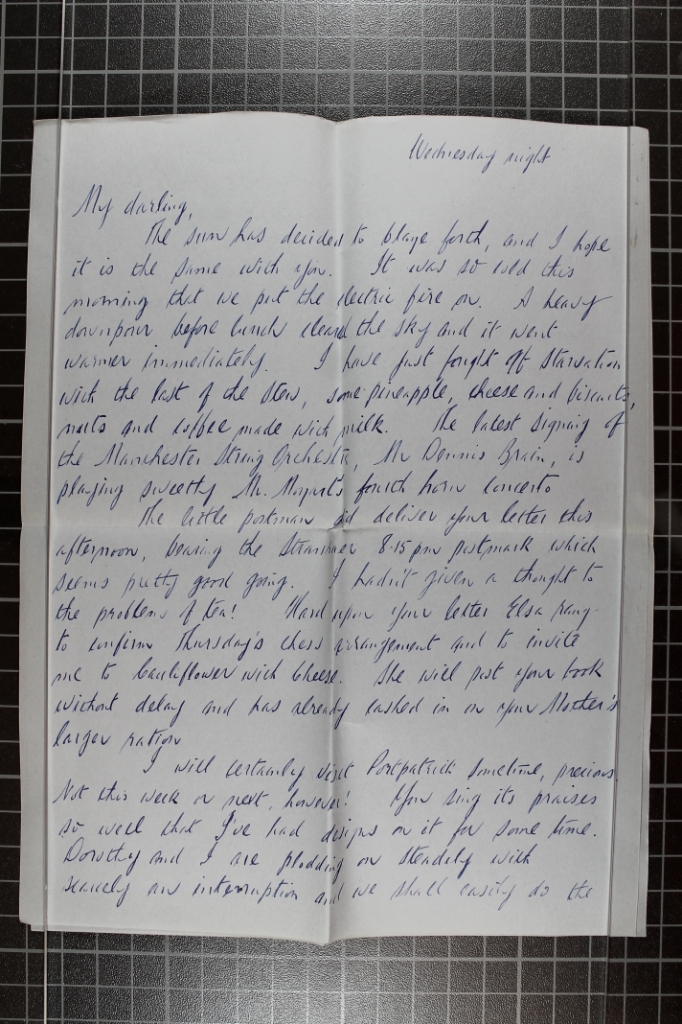 Wednesday night
My darling,
The sun has decided to blaze forth, and I hope
it is the same with you. It was so cold this
morning that we put the electric fire on. A heavy
downpour before lunch cleared the sky and it went
warmer immediately. I have just fought off starvation
with the last of the stew, some pineapple, cheese and biscuits,
nuts and coffee made with milk. The latest signing of
the Manchester String Orchestra, Mr Dennis Brain, is
playing sweetly Mr. Mozart's fourth horn concerto
The little postman did deliver your letter this
afternoon, bearing the Stranraer 8.15 pm postmark which
seems pretty good going. I hadn't given a thought to
the problem of tea! Hard upon your letter Elsa rang
to confirm Thursday's chess arrangement and to invite
me to Cauliflower with Cheese. She will post your book
without delay and has already cashed in on your Mother's
larger ration
I will certainly visit Portpatrick sometime, precious.
Not this week or next, however! You sing its praises
so well that I've had designs on it for some time.
Dorothy and I are plodding on steadily with
scarcely an interruption and we shall easily do the